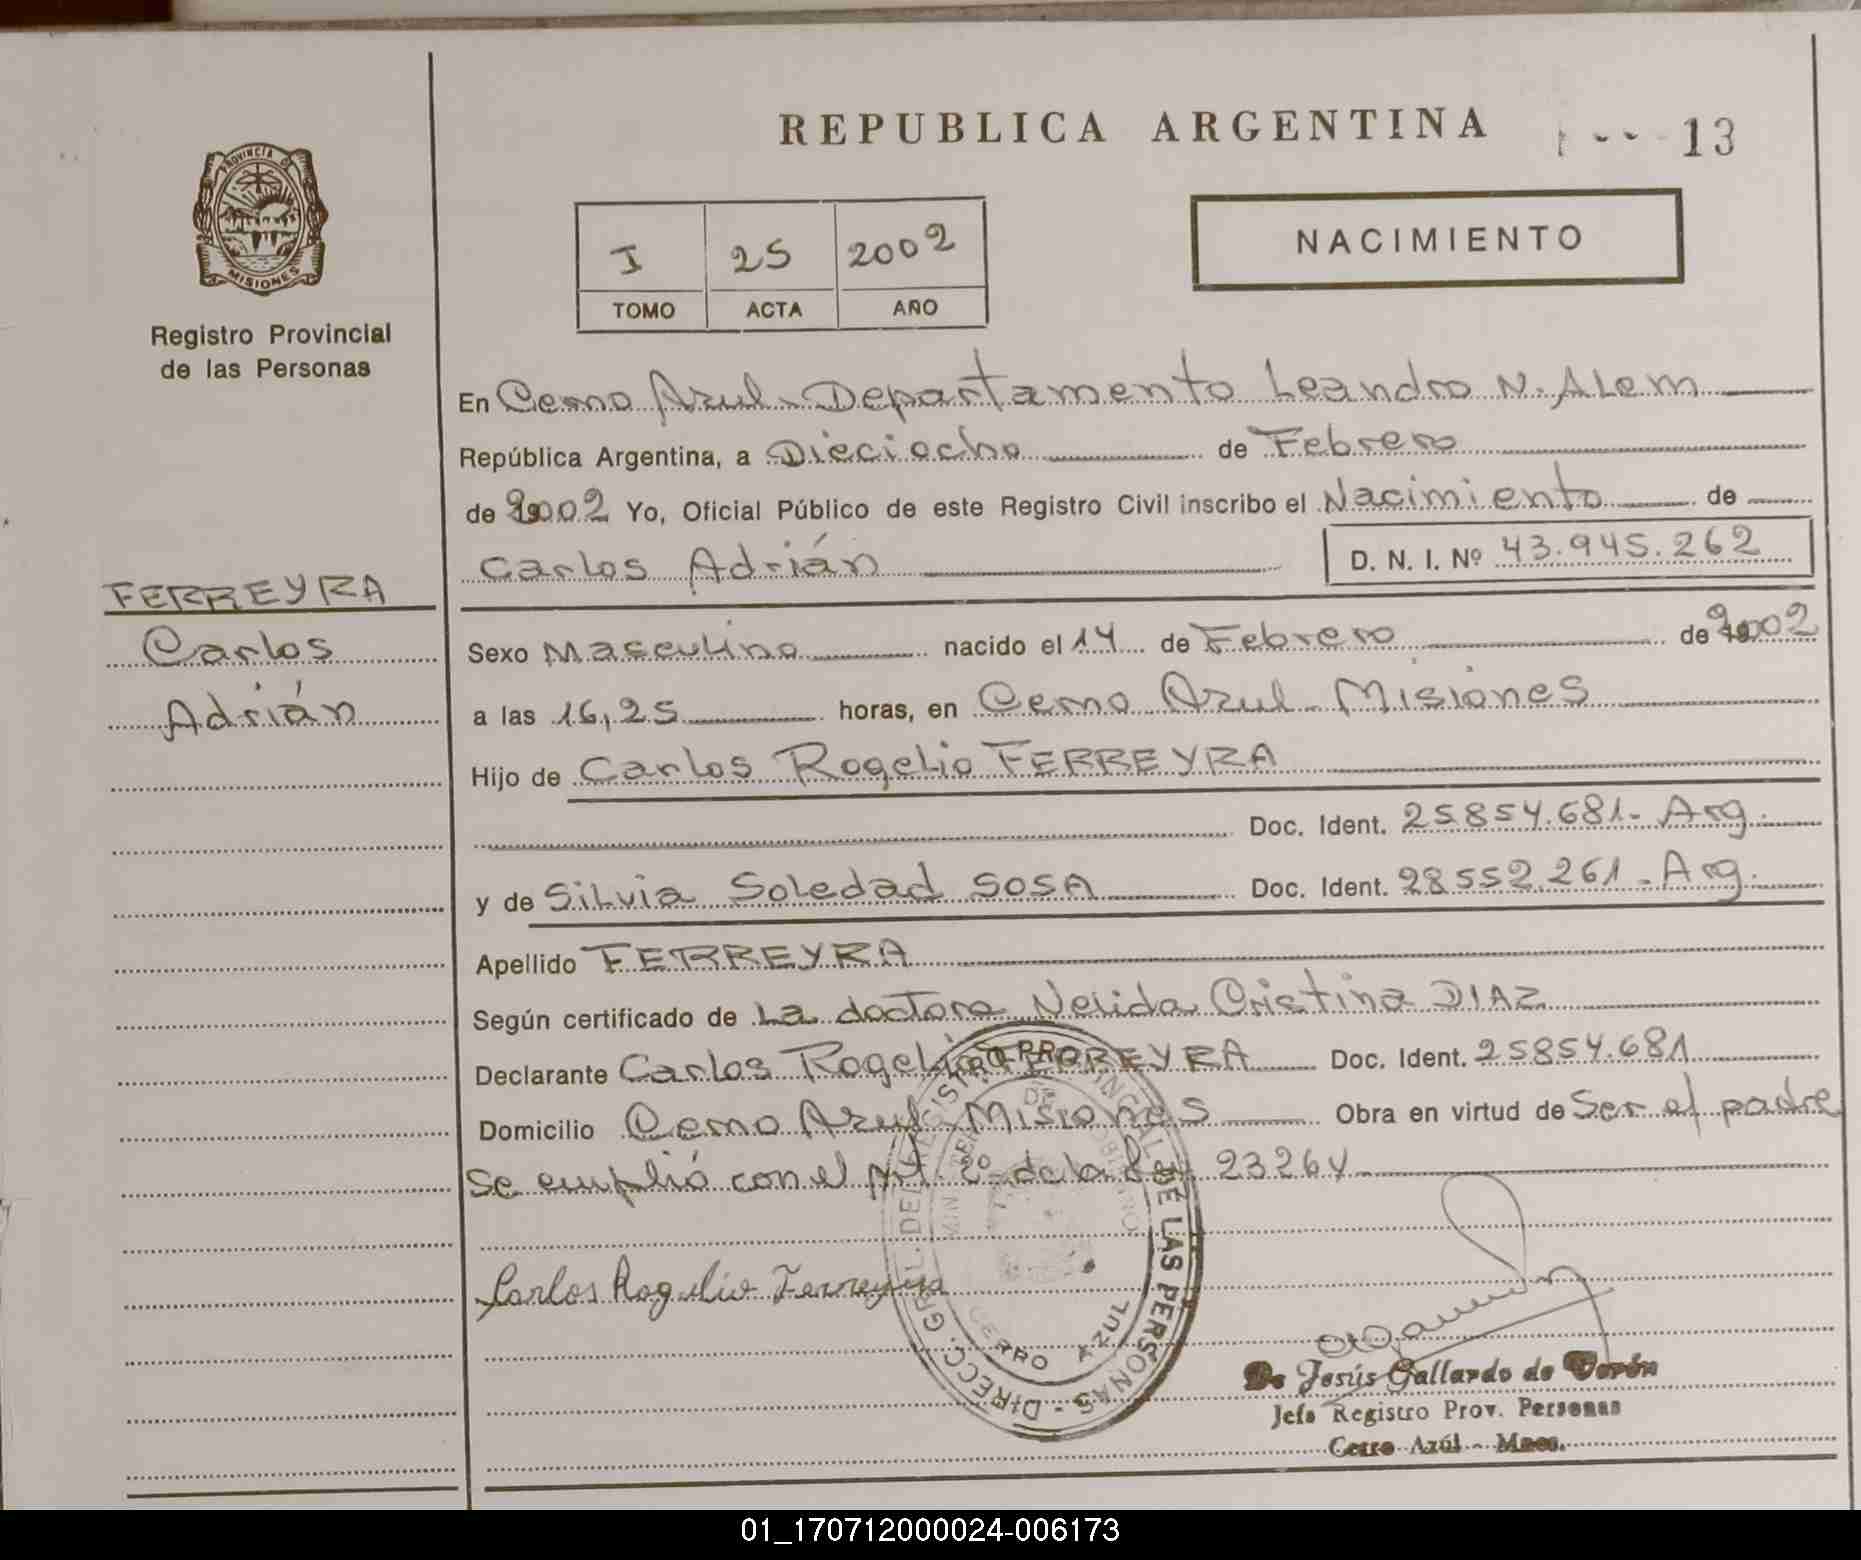 REPUBLICA ARGENTINA 13
PROVINCIA DE
MISIONES
Registro Provincial
de las Personas
I 25 2002
TOMO ACTA AÑO
NACIMIENTO
En Cerro Azul - Departamento Leandro N. ALem
República Argentina, a Dieciocho de Febrero
de 2002 Yo, Oficial Público de este Registro Civil inscribo el Nacimiento de
Carlos Adrián D. N. I. Nº 43.945.262
FERREYRA
Carlos
Adrián
Sexo Masculino nacido el 14 de Febrero de 2002
a las 16,25 horas, en Cerro Azul - Misiones
Hijo de Carlos Rogelio FERREYRA
Doc. Ident. 25854.681- Arg.
y de Silvia Soledad SOSA Doc. Ident. 28552.261 - Arg.
Apellido FERREYRA
Según certificado de La doctora Nelida Cristina DIAZ
Declarante Carlos Rogelio FERREYRA Doc. Ident. 25854.681
Domicilio Cerro Azul Misiones Obra en virtud de Ser el padre
Se cumplió con el Art. 2º de la Ley 23264
Carlos Rogelio Ferreyra
DIRECC. GRAL. DEL REGISTRO PROVINCIAL DE LAS PERSONAS
CERRO AZUL
De Jesús Gallardo de Verón
Jefe Registro Prov. Personas
Cerro Azúl - Mnes.
01_170712000024-006173